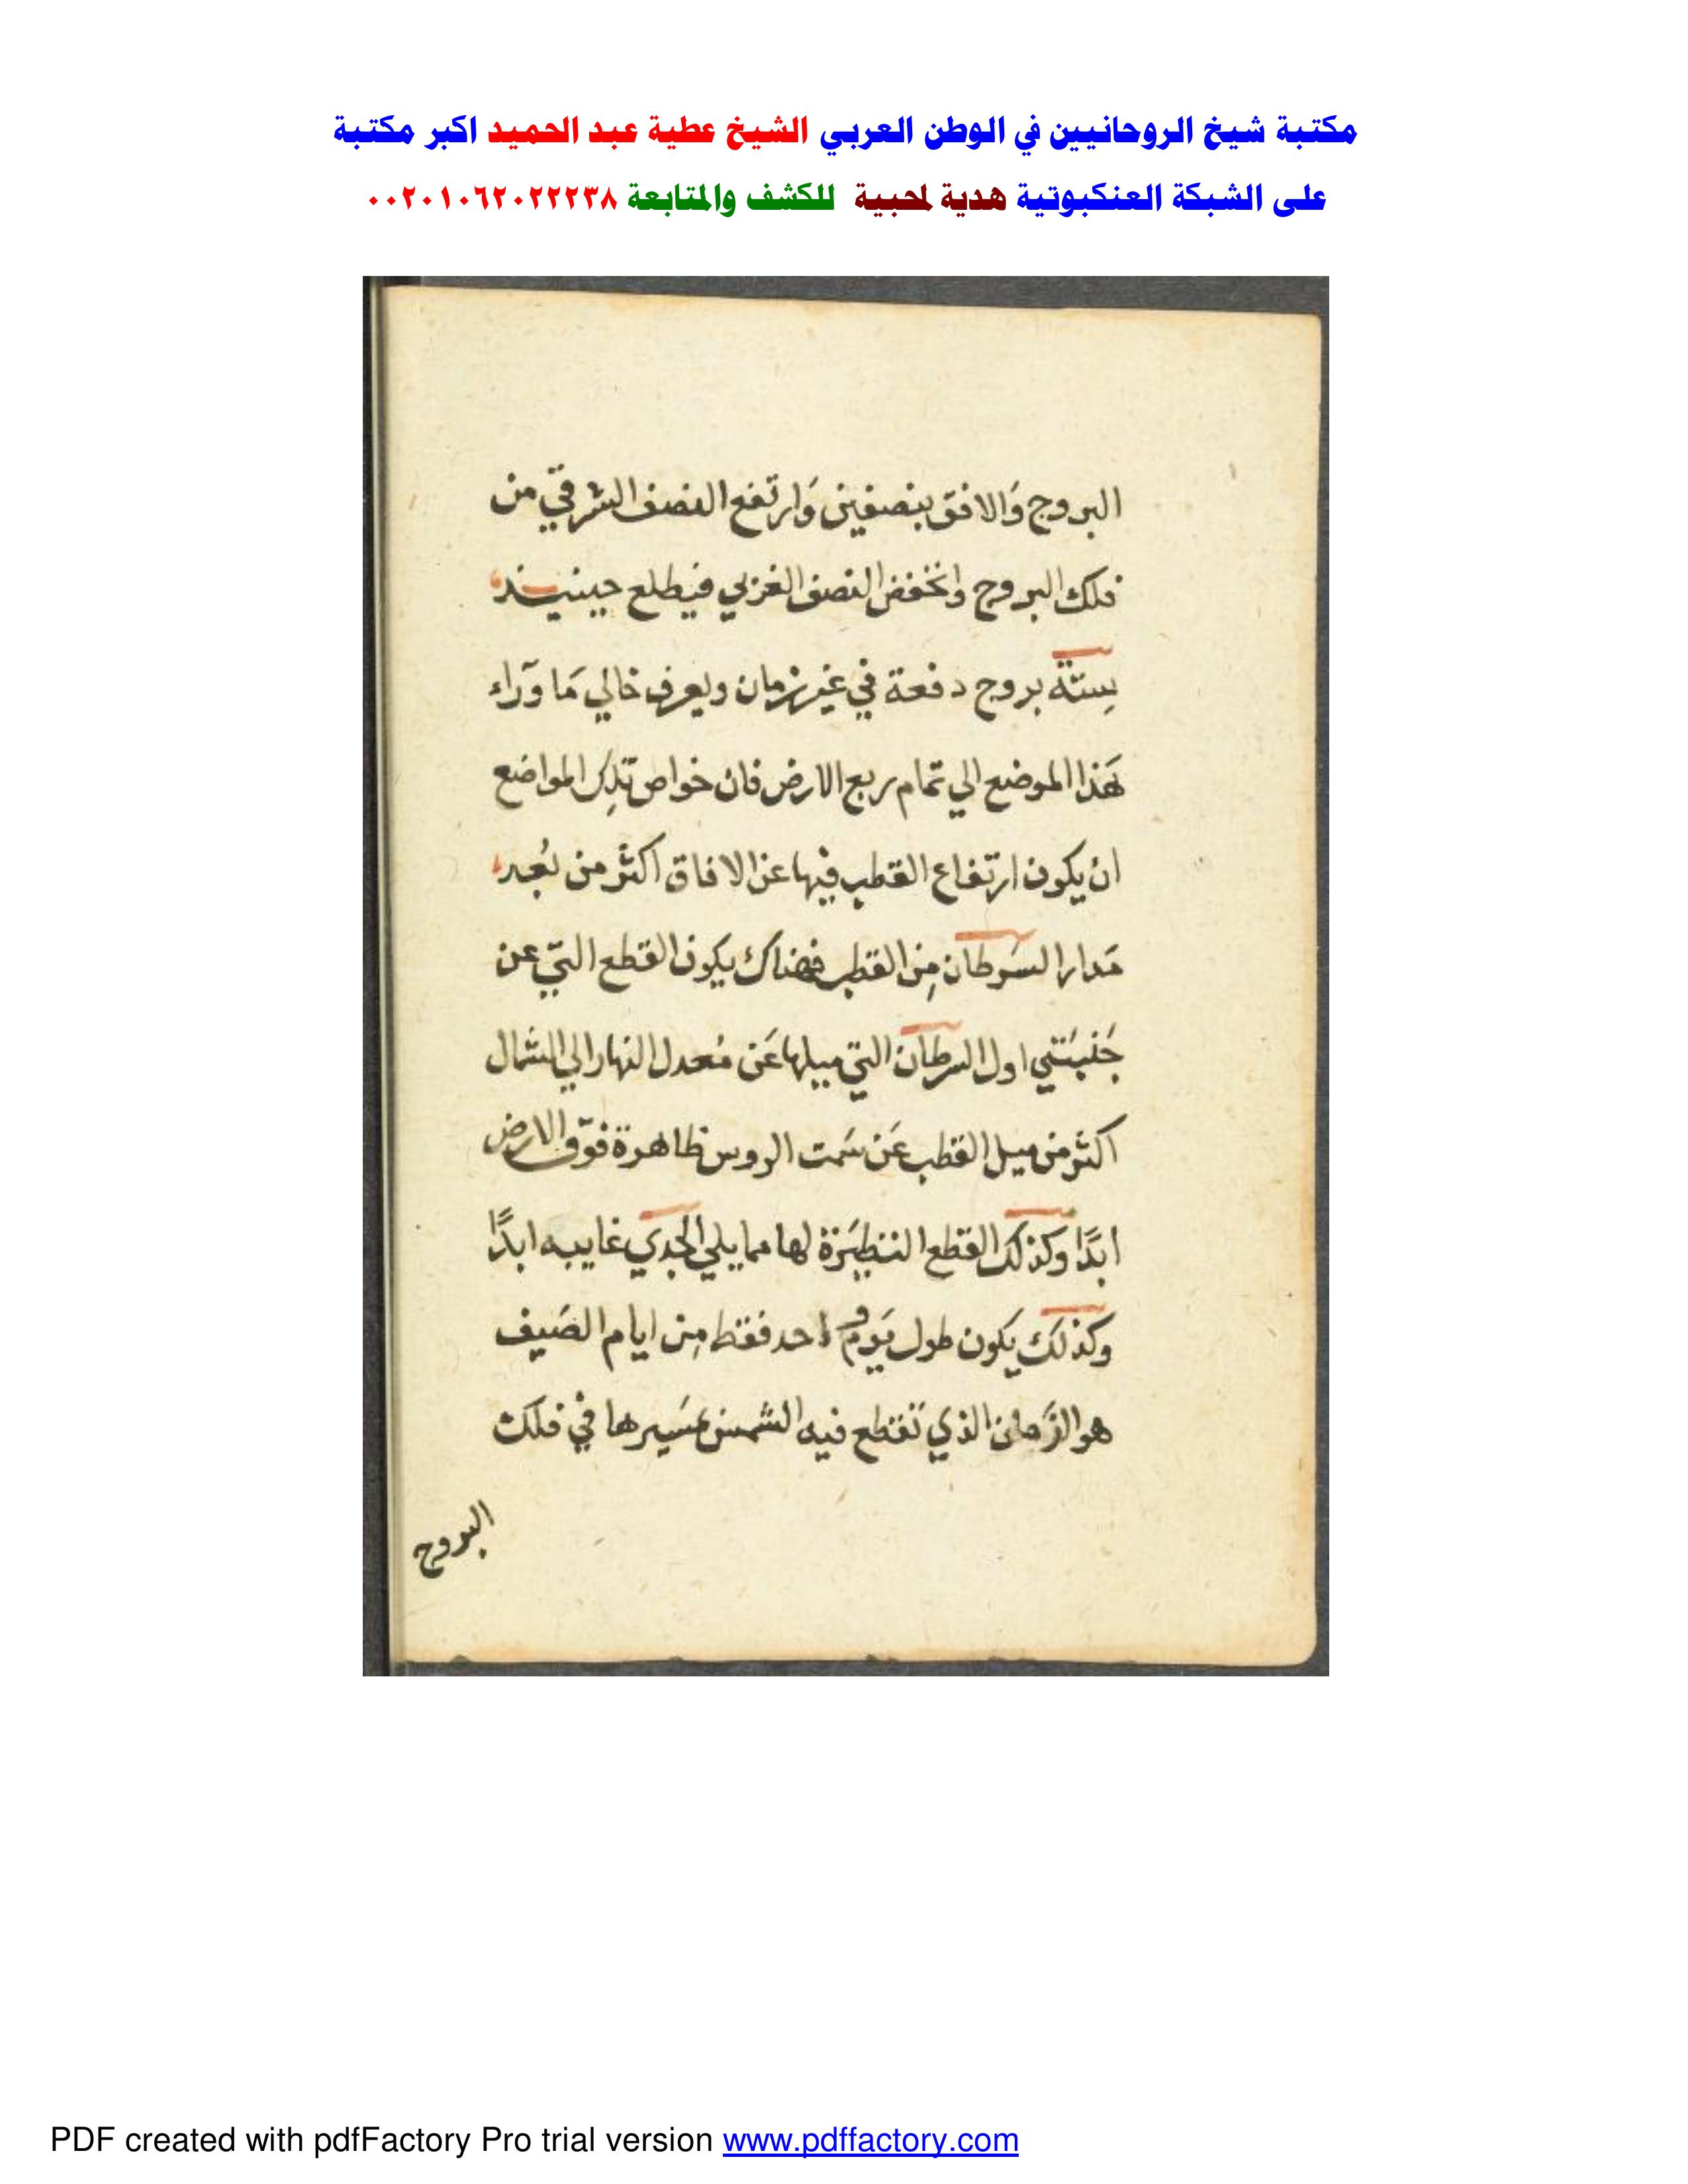 مكتبة شيخ الروحانيين في الوطن العربي الشيخ عطية عبد الحميد اكبر مكتبة
على الشبكة العنكبوتية هدية لمحبية للكشف والمتابعة ٠٠٢٠١٠٦٢٠٢٢٢٣٨
البروج وَالافق بنصفين وَارتفع النصف الشرقي من
فلك البروج وانخفض النصف الغربي فيطلع حينيذ
ستة بروج دفعة في غير زمان ويعرف خالي مَا وَرَاء
هَذا الموضع الي تمام ربع الارض فان خواص تلك المواضع
ان يكون ارتفاع القطب فيها عن الافاق اكثر من بُعد
مَدار السَرطان مِن القطب فهناك يكون القطع التي عن
جَنبَتَي اول السرطان التي ميلها عَن مُعدل النهار الي الشمال
اكثر من ميل القطب عَن سَمت الروس ظاهرة فوق الارض
ابدًا وكذلك القطع النظيرة لها مما يلي الجدي غايبه ابدًا
وكذلك يكون طول يَوم واحد فقط مِن ايام الصَيف
هو الزَمان الذي تقطع فيه الشمس مسَيرها في فلك
البروج
PDF created with pdfFactory Pro trial version www.pdffactory.com